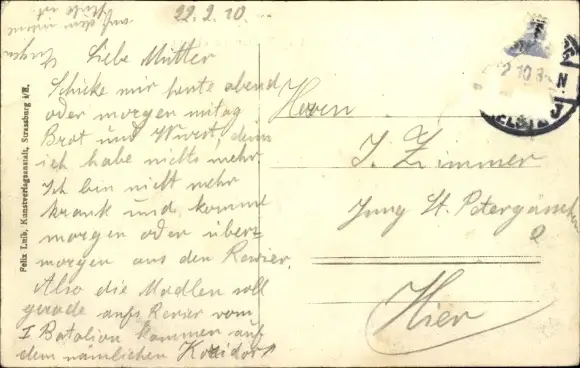 22.2.10.
Liebe Mutter
Schicke mir heute abend
oder morgen mitag
Brot und Wurst, denn
ich habe nichts mehr.
Ich bin nicht mehr
krank und komme
morgen oder über-
morgen aus den Revier.
Also die Madlen soll
gerade aufs Revier vom
I Batalion kommen auf
dem nämlichen Koridor
auf dem
Herrn
J. Zimmer
Jung St. Petergässchen
2
Hier
Felix Luib, Kunstverlagsanstalt, Strassburg i/E.
2.10.
N